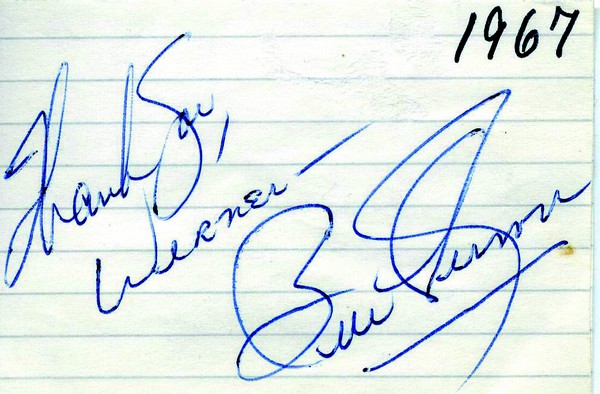 1967
Thank You,
Werner —
Bill